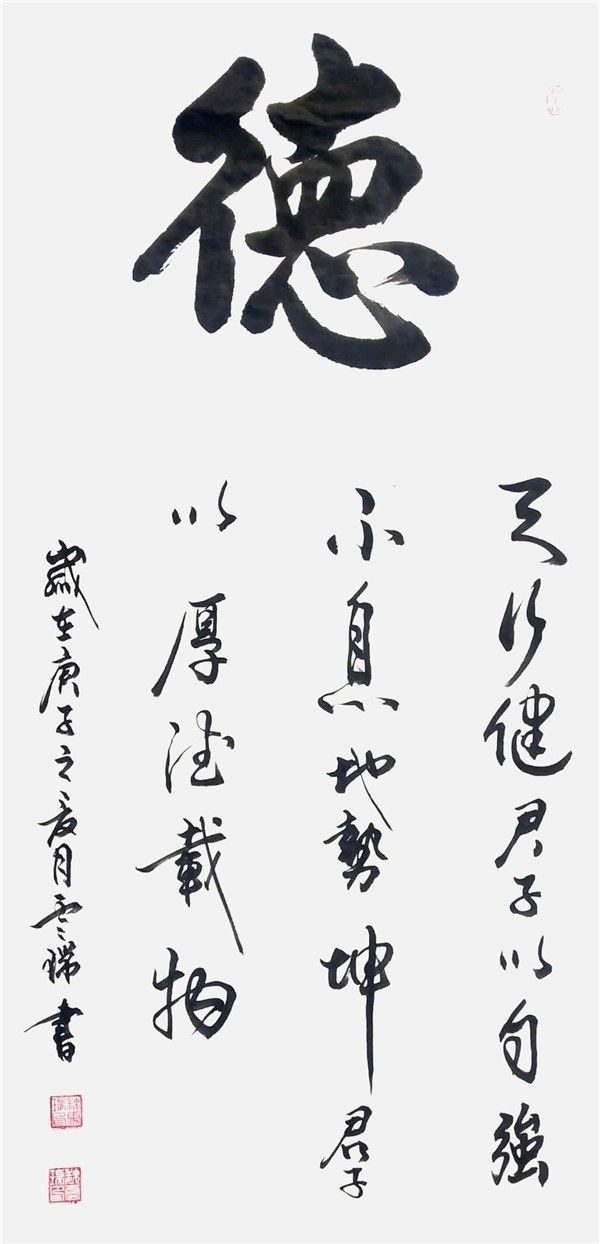 德
天行健君子以自強
不息地勢坤君子
以厚德載物
歲在庚子之夏月雲瑞書